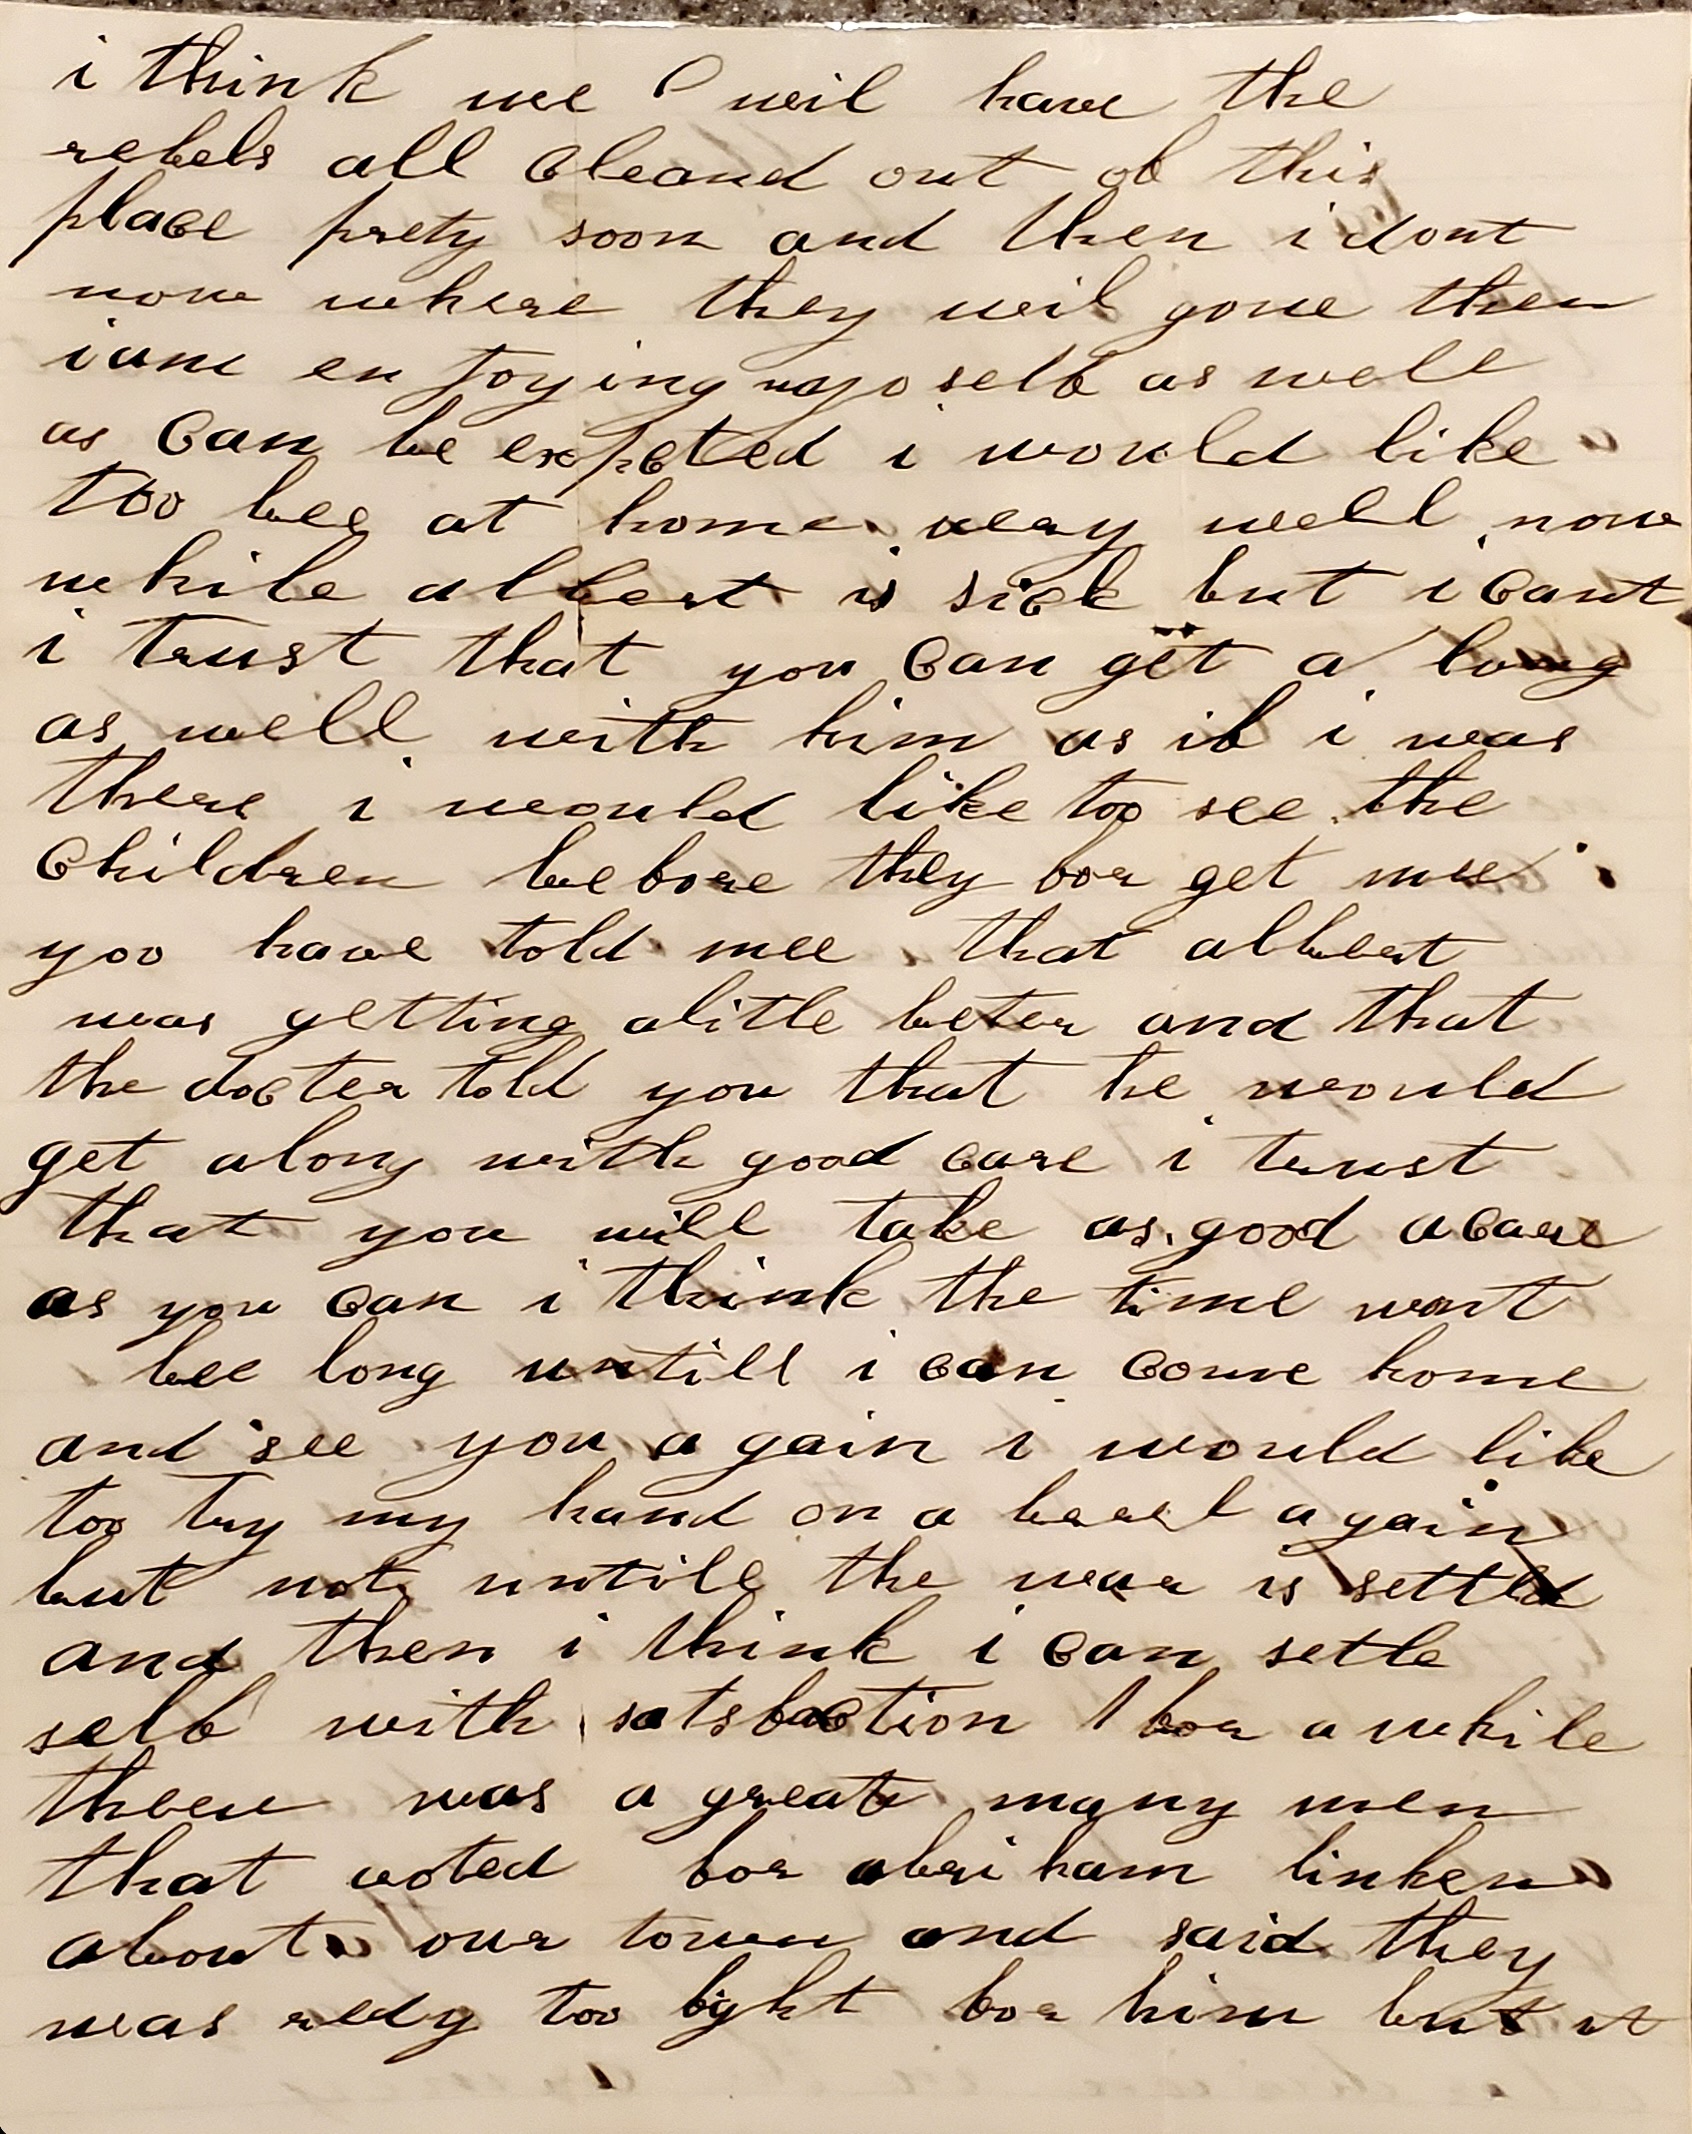 i think we wil have the
rebels all cleand out of this
place prety soon and then i dont
now where they wil gone then
i am en joying my self as well
as can be expcted i would like
too bee at home very well now
while albert is sick but i cant
i trust that you can get a long
as well with him as if i was
there i would like too see the
children before they for get mee
yoo have told mee that albert
was getting a litle beter and that
the docter told you that he would
get along with good care i trust
that you will take as good a care
as you can i think the time wont
bee long untill i can come home
and see you a gain i would like
too try my hand on a again
but not untill the war is settld
and then i think i can setle
self with satsfaction for a while
there was a great many men
that voted for abriham linken
about our town and said they
was redy too fight for him but it